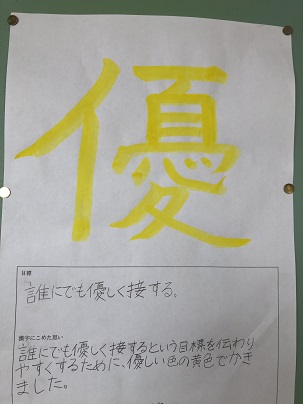 優
目標
誰にでも優しく接する。
漢字にこめた思い
誰にでも優しく接するという目標を伝わり
やすくするために、優しい色の黄色でかき
ました。